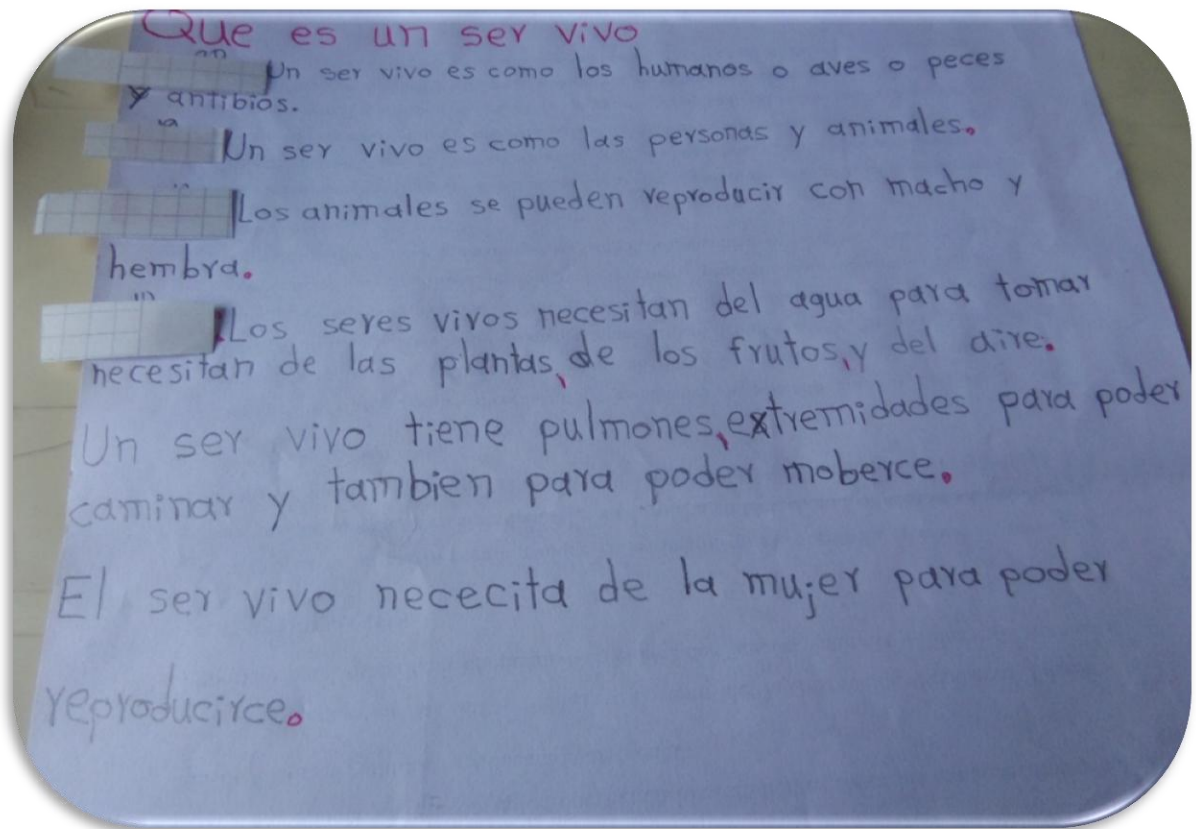 Que es un ser vivo
Un ser vivo es como los humanos o aves o peces
y antibios.
Un ser vivo es como las personas y animales.
Los animales se pueden reproducir con macho y
hembra.
Los seres vivos necesitan del agua para tomar
necesitan de las plantas, de los frutos, y del aire.
Un ser vivo tiene pulmones, extremidades para poder
caminar y tambien para poder moberce.
El ser vivo nececita de la mujer para poder
reproducirce.